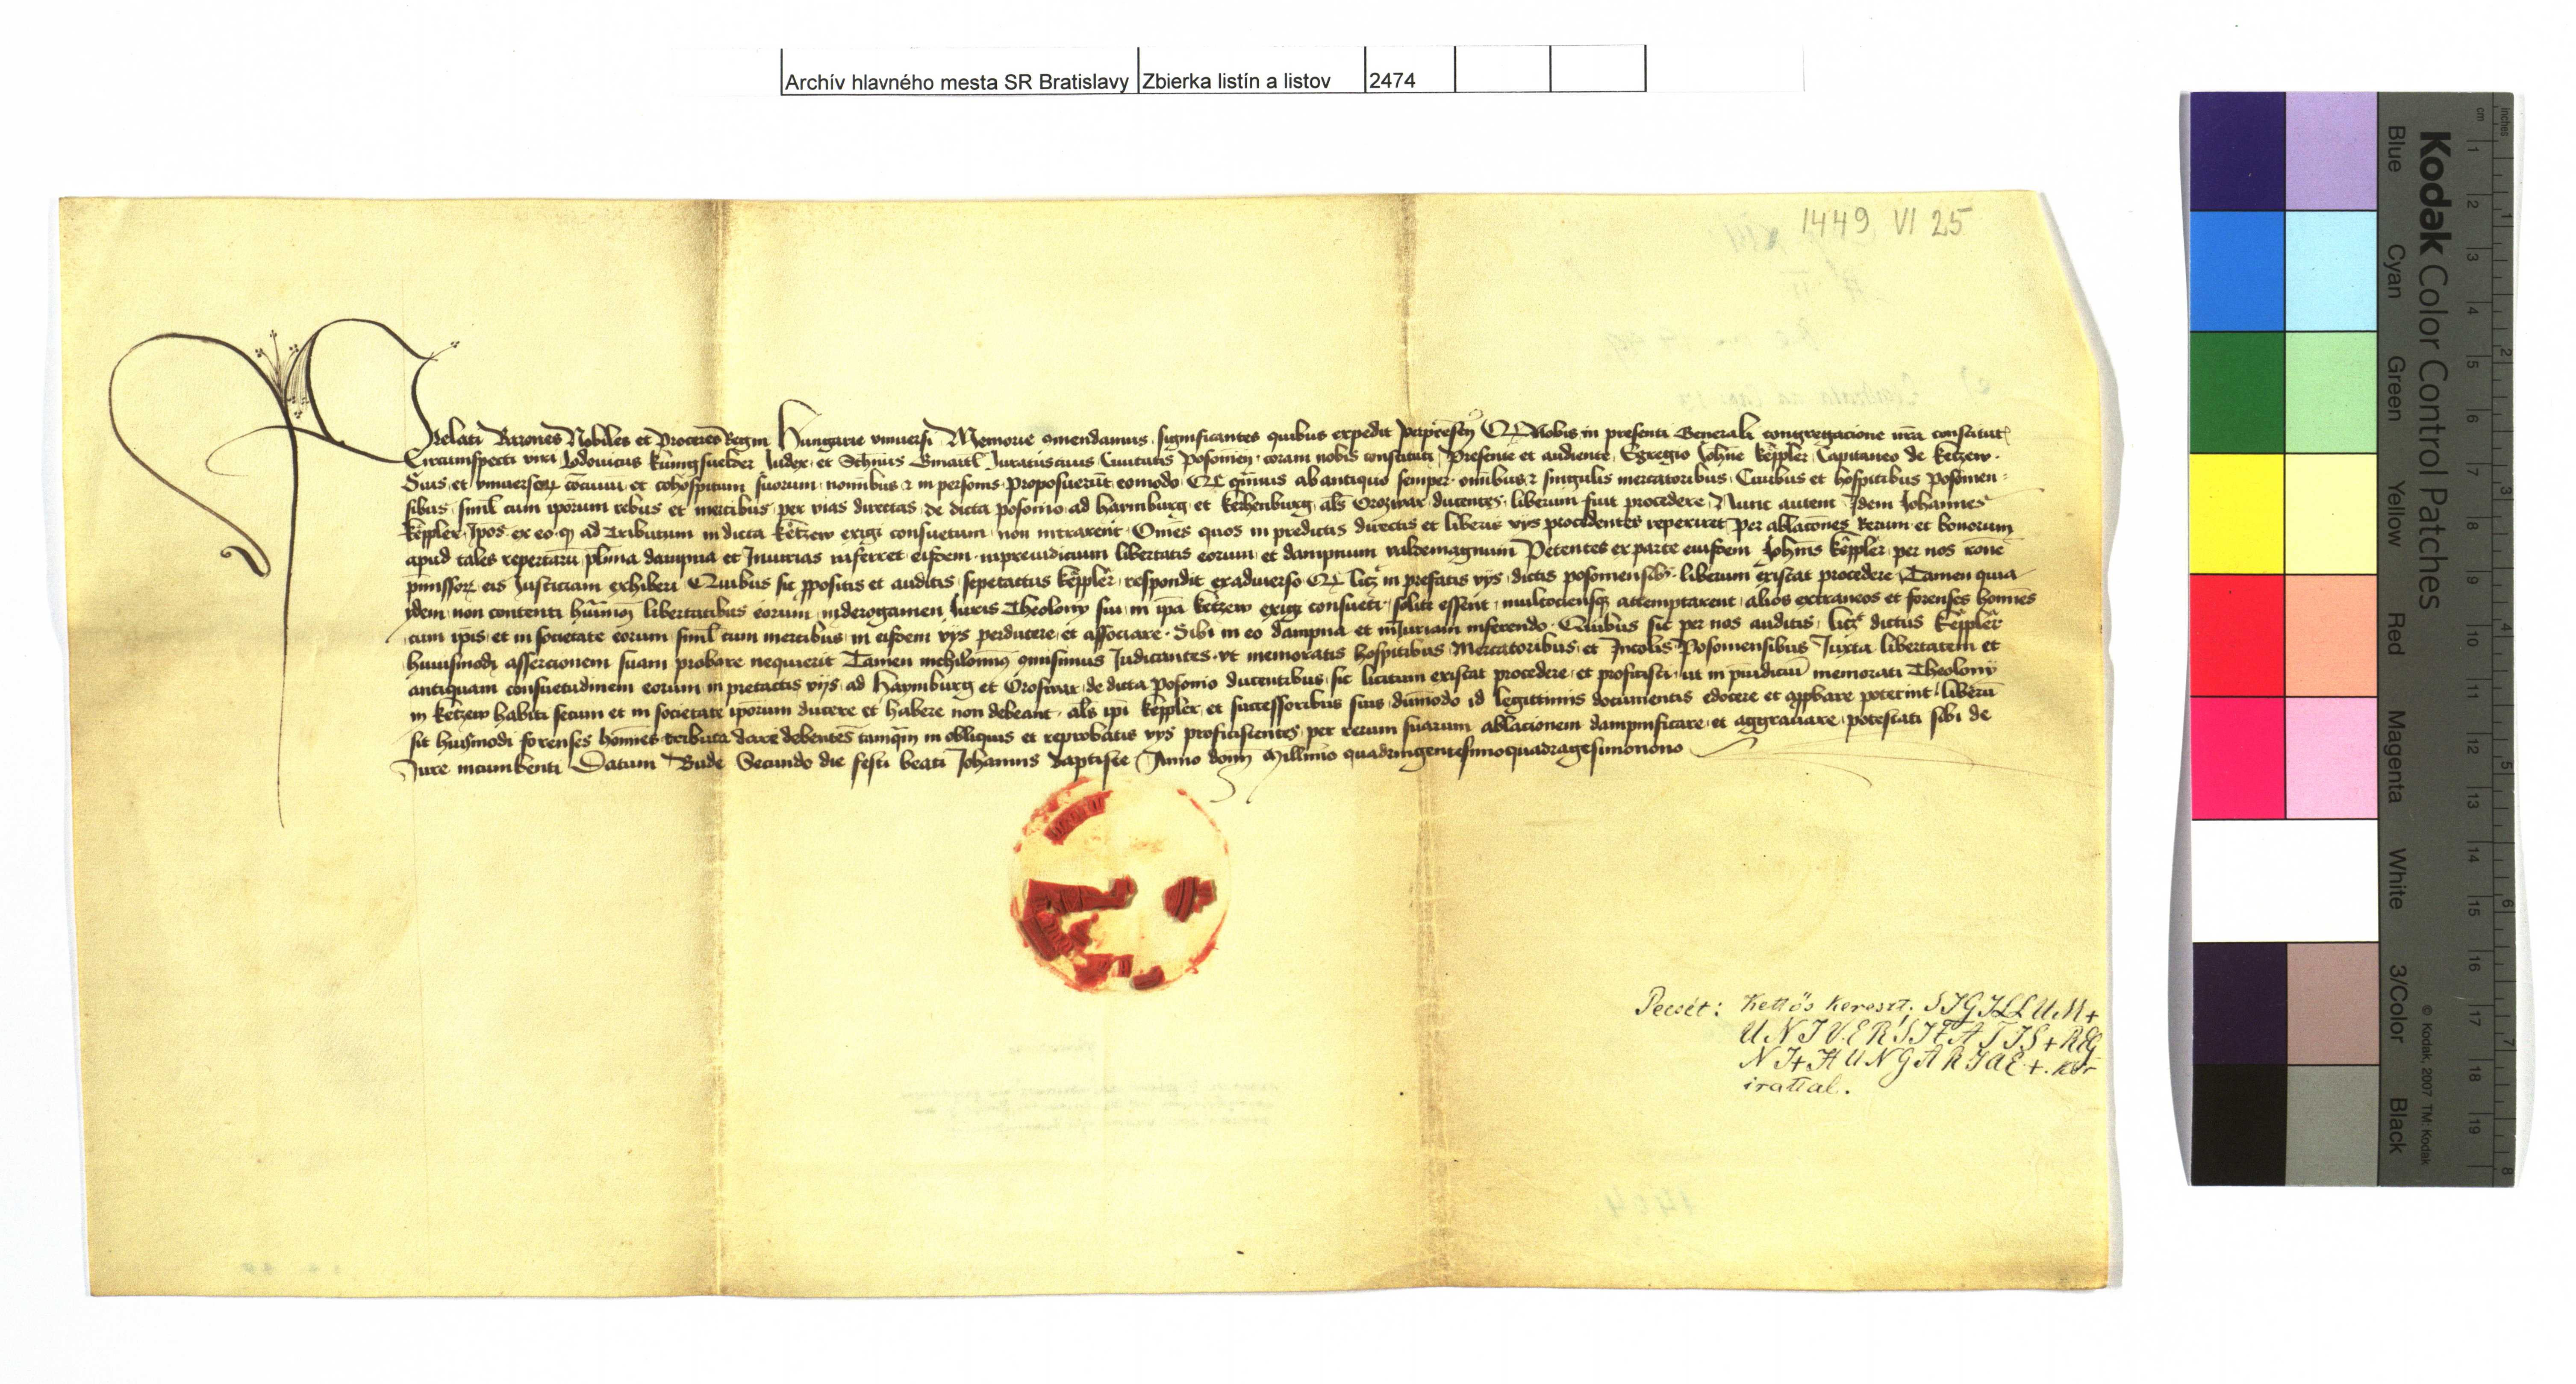 Archív hlavného mesta SR Bratislavy Zbierka listín a listov 2474
1449 VI 25
Prelati Barones Nobiles et Proceres Regni Hungarie vniuersi Memorie comendamus significantes quibus expedit per presentes Quod Nobis in presenti Generali congregacione nostra constitutis
Circumspecti viri Lodouicus Kunigsuelder Judex et Juratus ciuis Ciuitatis Posonien coram nobis constituti Presente et audiente Egregio Johanne Keppler Capitaneo de Ketzew
Suis et vniuersorum conciuium et cohospitum suorum nominibus et in personis Proposuerunt eomodo Quod quamuis ab antiquo semper omnibus et singulis mercatoribus Ciuibus et hospitibus Posonien
sibus simul cum ipsorum rebus et mercibus per vias directas de dicta Posonio ad Haymburg et Kerhenburg als Orozwar ducentes liberum fuit procedere Nunc autem Idem Johannes
Keppler Ipsos ex eo quod ad Tributum in dicta Ketzew exigi consuetum non intrarent Omnes quos in predictis directis et liberis vijs procedentes reperiret per ablacones Rerum et bonorum
apud tales repertarum plurima dampna et Iniurias inferret eisdem in preiudicium libertatis eorum et dampnum valde magnum Petentes ex parte eiusdem Johannis Keppler per nos racione
premissorum eis Justiciam exhiberi Quibus sic propositis et auditis sepetactus Keppler respondit ex aduerso Quod licet in prefatis vijs dictis Posoniensibus liberum existat procedere Tamen quia
ydem non contenti huiusmodi libertatibus eorum in derogamen Juris Theolony sui in ipsa Ketzew exigi consueti soliti essent multociensque attemptarent alios extraneos et forenses homines
cum ipsis et in societate eorum simul cum mercibus in eisdem vijs perducere et associare Sibi in eo dampna et iniuriam inferendo Quibus sic per nos auditis licet dictus Keppler
huiusmodi assercionem suam probare nequierit Tamen nichilominus commisimus Judicantes vt memoratis hospitibus Mercatoribus et Incolis Posoniensibus Juxta libertatem et
antiquam consuetudinem eorum in pretactis vijs ad Haymburg et Oroswar de dicta Posonio ducentibus sic licitum existat procedere et proficisci ut in preiudicium memorati Theolony
in Ketzew habiti secum et in societate ipsorum ducere et habere non debeant als ipsi Keppler et successoribus suis dummodo id legittimis documentis edocere et approbare poterint liberum
sit huiusmodi forenses homines tributa dare debentes tamquam in obliquis et reprobatis vijs proficiscentes per rerum suarum ablacionem dampnificare et aggrauare potestati sibi de
Jure incumbenti Datum Bude Secundo die festi beati Johannis Baptiste Anno domini Millimo quadringentesimoquadragesimonono
Pecsét: Kettős kereszt; SIGILLUM+
UNIVERSITATIS+REG
NI+HUNGARIAE+. kör-
irattal.
Kodak Color Control Patches
Blue Cyan Green Yellow Red Magenta White 3/Color Black
© Kodak, 2007 TM: Kodak
cm 1 2 3 4 5 6 7 8 9 10 11 12 13 14 15 16 17 18 19
inches 1 2 3 4 5 6 7 8